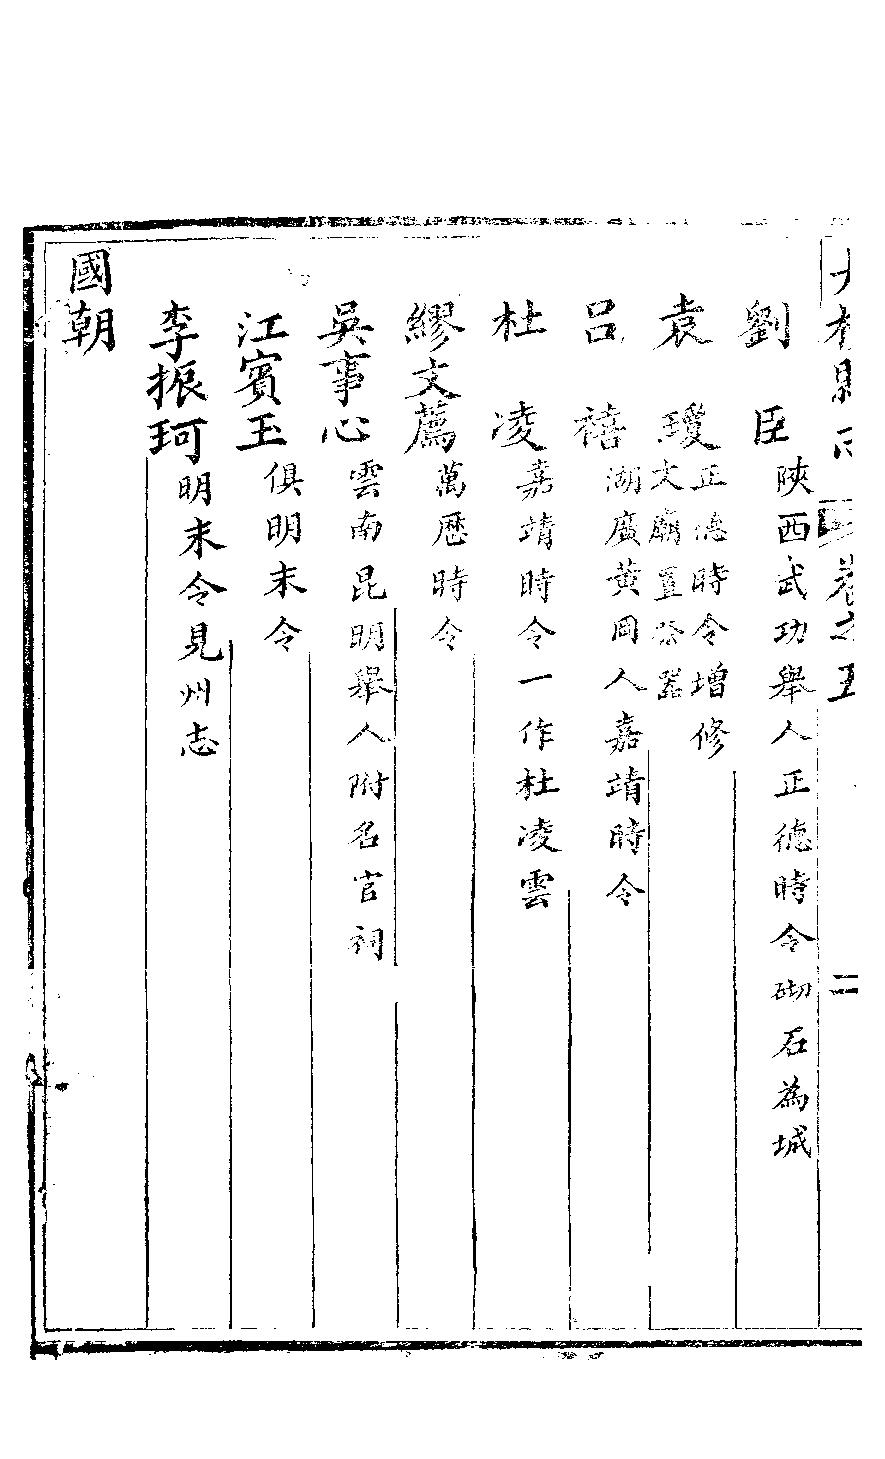 縣志 卷之五 二
劉臣 陝西武功舉人正德時令砌石為城
袁瓊 正德時令增修
文廟置祭器
呂禧 湖廣黄岡人嘉靖時令
杜凌 嘉靖時令一作杜凌雲
繆文薦 萬歷時令
吳事心 雲南昆明舉人附名官祠
江賓玉 俱明末令
李振珂 明末令見州志
國朝